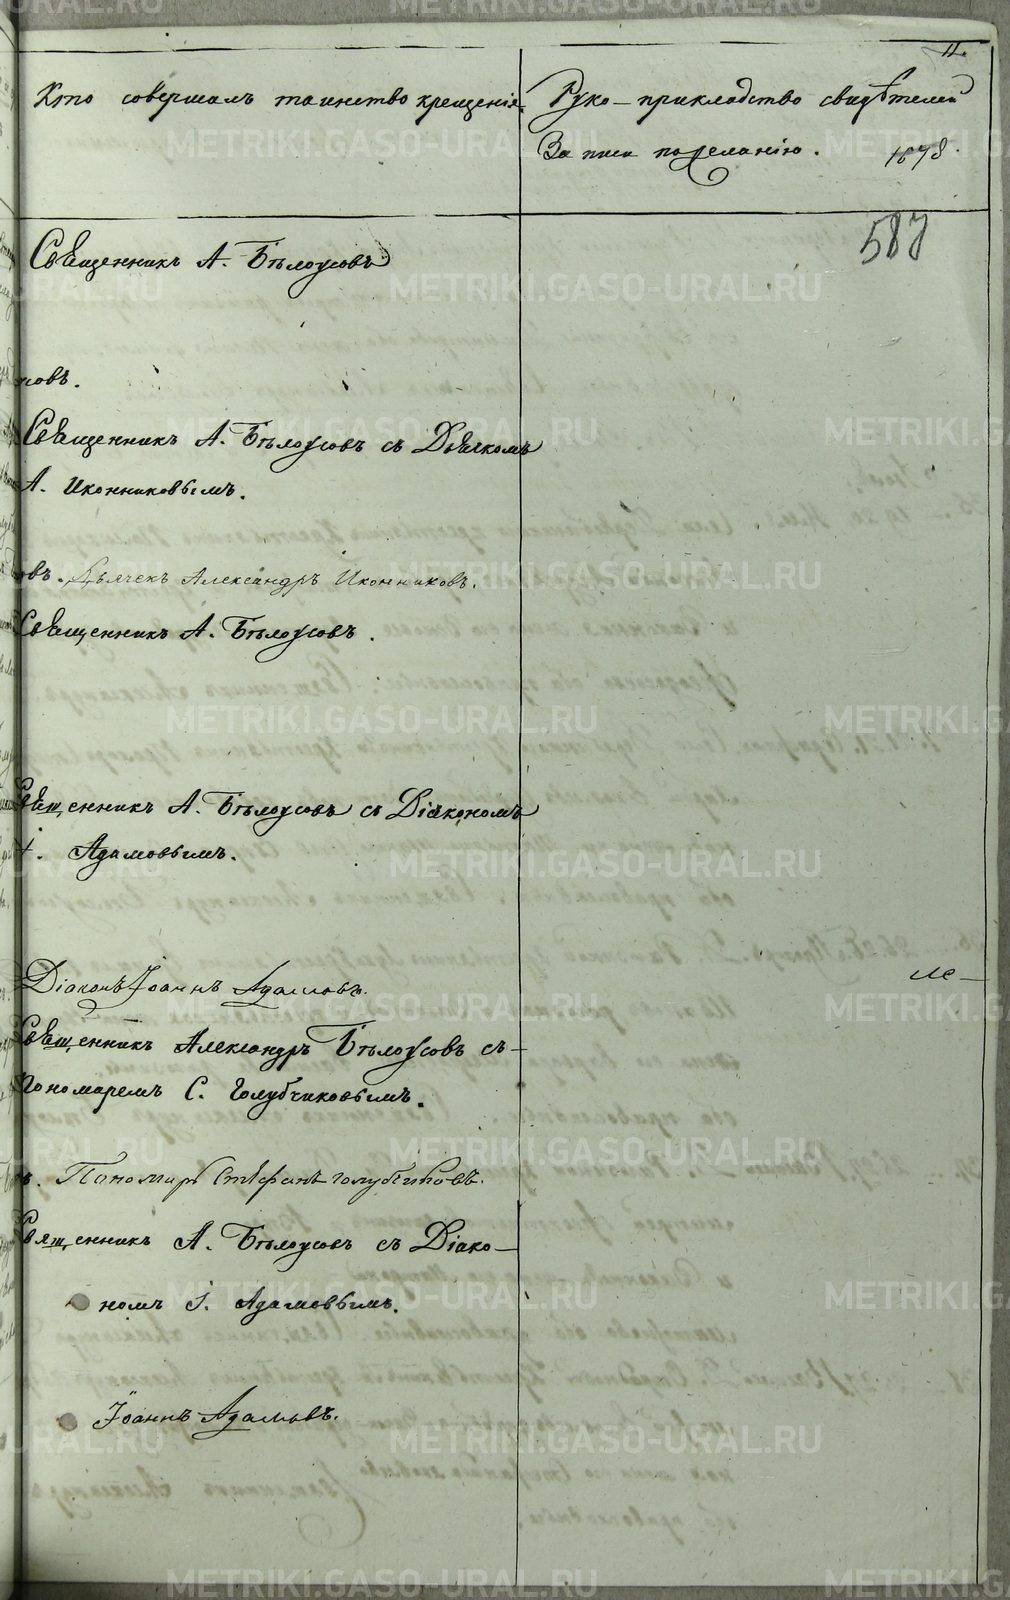 11.
Кто совершалъ таинство крещенія.
Руко-прикладство свидѣтелей
Записи по желанію. 1878.
587
Священникъ А. Бѣлоусовъ
усовъ.
Священникъ А. Бѣлоусовъ съ Дьячкомъ
А. Иконниковымъ.
овъ. Дьячекъ Александръ Иконниковъ.
Священникъ А. Бѣлоусовъ.
Священникъ А. Бѣлоусовъ съ Діакономъ
І. Адамовымъ.
Діаконъ Іоаннъ Адамовъ.
Священникъ Александръ Бѣлоусовъ съ
Пономаремъ С. Голубчиковымъ.
въ. Пономарь Стефанъ Голубчиковъ.
Священникъ А. Бѣлоусовъ съ Діако-
номъ І. Адамовымъ.
Іоаннъ Адамовъ.
METRIKI.GASO-URAL.RU